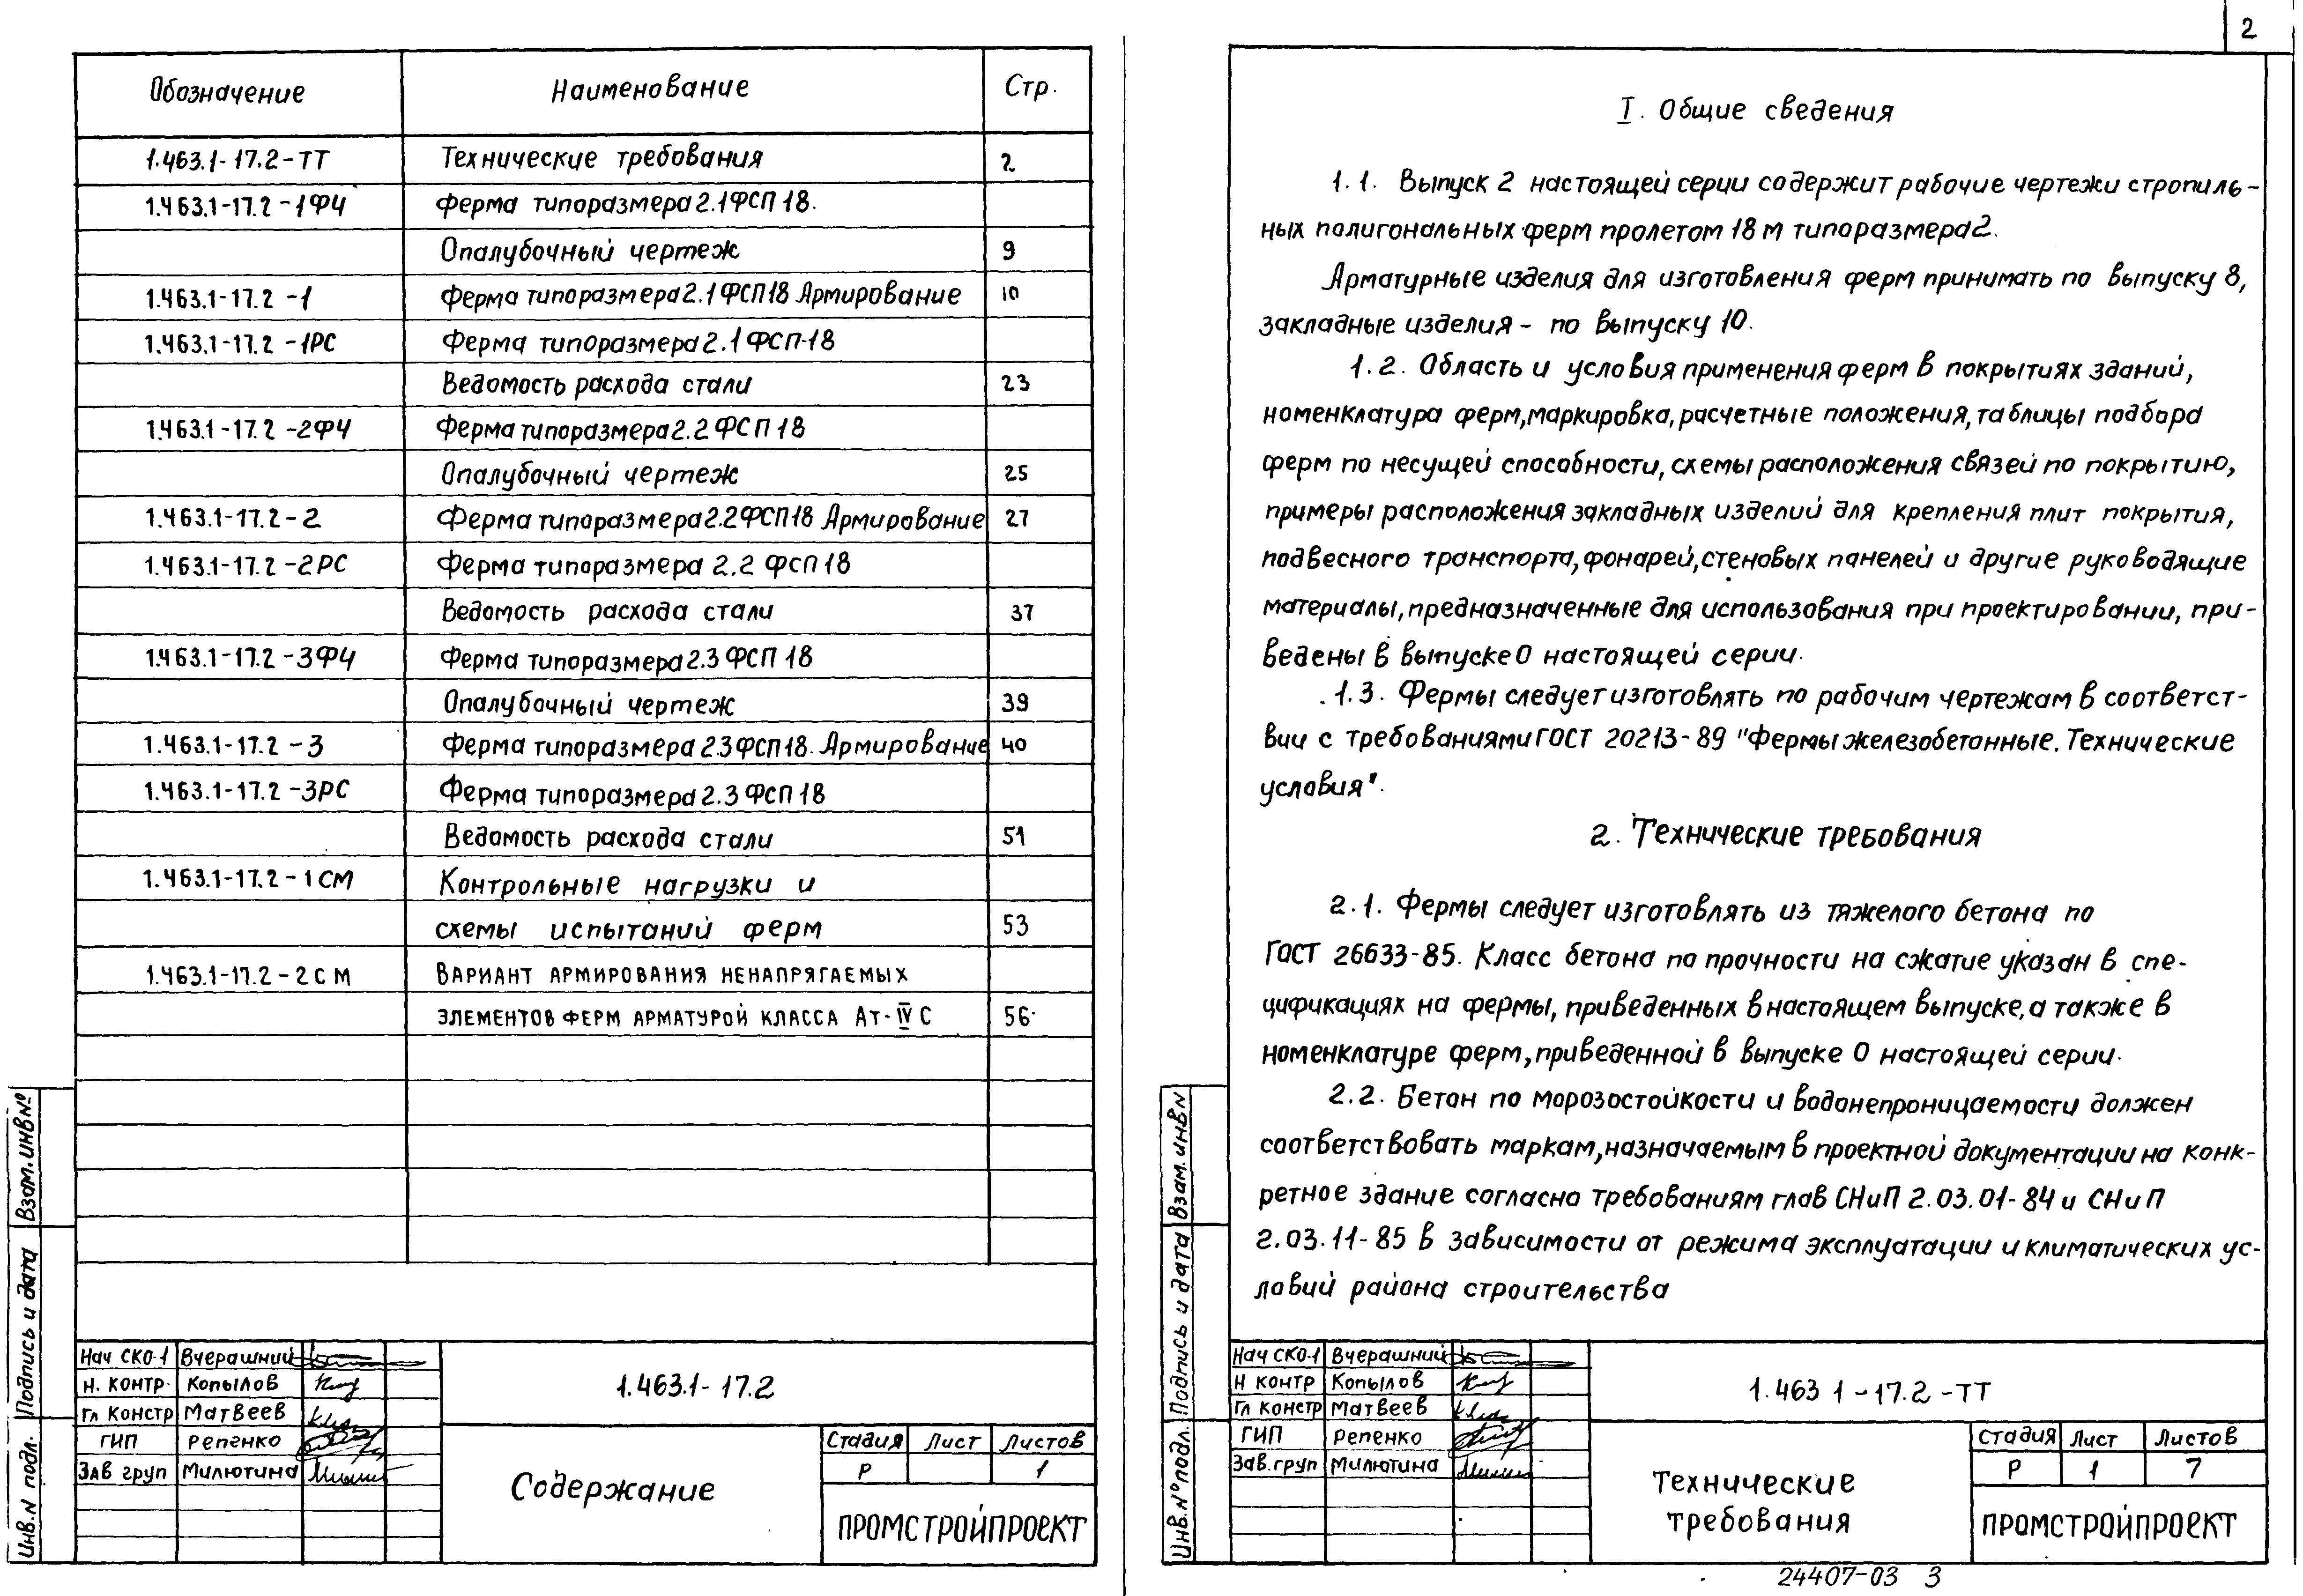 Обозначение Наименование Стр.
1.463.1-17.2-ТТ Технические требования 2
1.463.1-17.2-1ФЧ Ферма типоразмера 2.1ФСП 18.
Опалубочный чертеж 9
1.463.1-17.2-1 Ферма типоразмера 2.1 ФСП18 Армирование 10
1.463.1-17.2-1РС Ферма типоразмера 2.1 ФСП-18
Ведомость расхода стали 23
1.463.1-17.2-2ФЧ Ферма типоразмера 2.2 ФСП 18
Опалубочный чертеж 25
1.463.1-17.2-2 Ферма типоразмера 2.2ФСП18 Армирование 27
1.463.1-17.2-2РС Ферма типоразмера 2.2 ФСП 18
Ведомость расхода стали 37
1.463.1-17.2-3ФЧ Ферма типоразмера 2.3 ФСП 18
Опалубочный чертеж 39
1.463.1-17.2-3 Ферма типоразмера 2.3ФСП18. Армирование 40
1.463.1-17.2-3РС Ферма типоразмера 2.3 ФСП 18
Ведомость расхода стали 51
1.463.1-17.2-1СМ Контрольные нагрузки и
схемы испытаний ферм 53
1.463.1-17.2-2СМ ВАРИАНТ АРМИРОВАНИЯ НЕНАПРЯГАЕМЫХ
ЭЛЕМЕНТОВ ФЕРМ АРМАТУРОЙ КЛАССА Ат-IV С 56
Взам.инв№
Подпись и дата
Инв.N подл.
Нач СКО-1 Вчерашний
Н. контр. Копылов
Гл констр Матвеев
ГИП Репенко
Зав груп Милютина
1.463.1-17.2
Содержание
Стадия Лист Листов
Р 1
ПРОМСТРОЙПРОЕКТ
2
I. Общие сведения
1.1. Выпуск 2 настоящей серии содержит рабочие чертежи стропиль-
ных полигональных ферм пролетом 18 м типоразмера 2.
Арматурные изделия для изготовления ферм принимать по выпуску 8,
закладные изделия - по выпуску 10.
1.2. Область и условия применения ферм в покрытиях зданий,
номенклатура ферм, маркировка, расчетные положения, таблицы подбора
ферм по несущей способности, схемы расположения связей по покрытию,
примеры расположения закладных изделий для крепления плит покрытия,
подвесного транспорта, фонарей, стеновых панелей и другие руководящие
материалы, предназначенные для использования при проектировании, при-
ведены в выпуске 0 настоящей серии.
1.3. Фермы следует изготовлять по рабочим чертежам в соответст-
вии с требованиями ГОСТ 20213-89 "Фермы железобетонные. Технические
условия".
2. Технические требования
2.1. Фермы следует изготовлять из тяжелого бетона по
ГОСТ 26633-85. Класс бетона по прочности на сжатие указан в спе-
цификациях на фермы, приведенных в настоящем выпуске, а также в
номенклатуре ферм, приведенной в выпуске 0 настоящей серии.
2.2. Бетон по морозостойкости и водонепроницаемости должен
соответствовать маркам, назначаемым в проектной документации на конк-
ретное здание согласно требованиям глав СНиП 2.03.01-84 и СНиП
2.03.11-85 в зависимости от режима эксплуатации и климатических ус-
ловий района строительства
Взам.инв N
Подпись и дата
Инв.N°подл.
Нач СКО-1 Вчерашний
Н контр Копылов
Гл констр Матвеев
ГИП Репенко
Зав.груп Милютина
1.463 1-17.2-ТТ
Технические
требования
Стадия Лист Листов
Р 1 7
ПРОМСТРОЙПРОЕКТ
24407-03 3